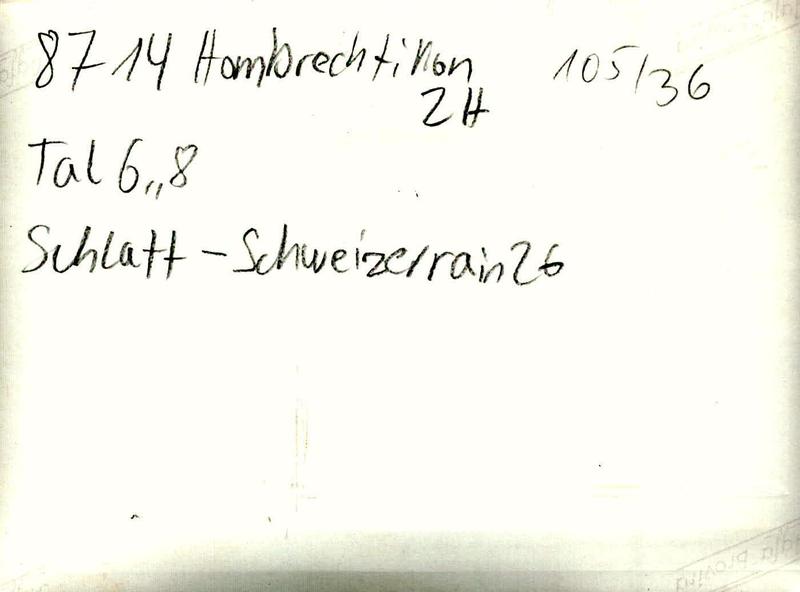 8714 Hombrechtikon 105/36
ZH
Tal 6,,8
Schlatt - Schweizerrain 26